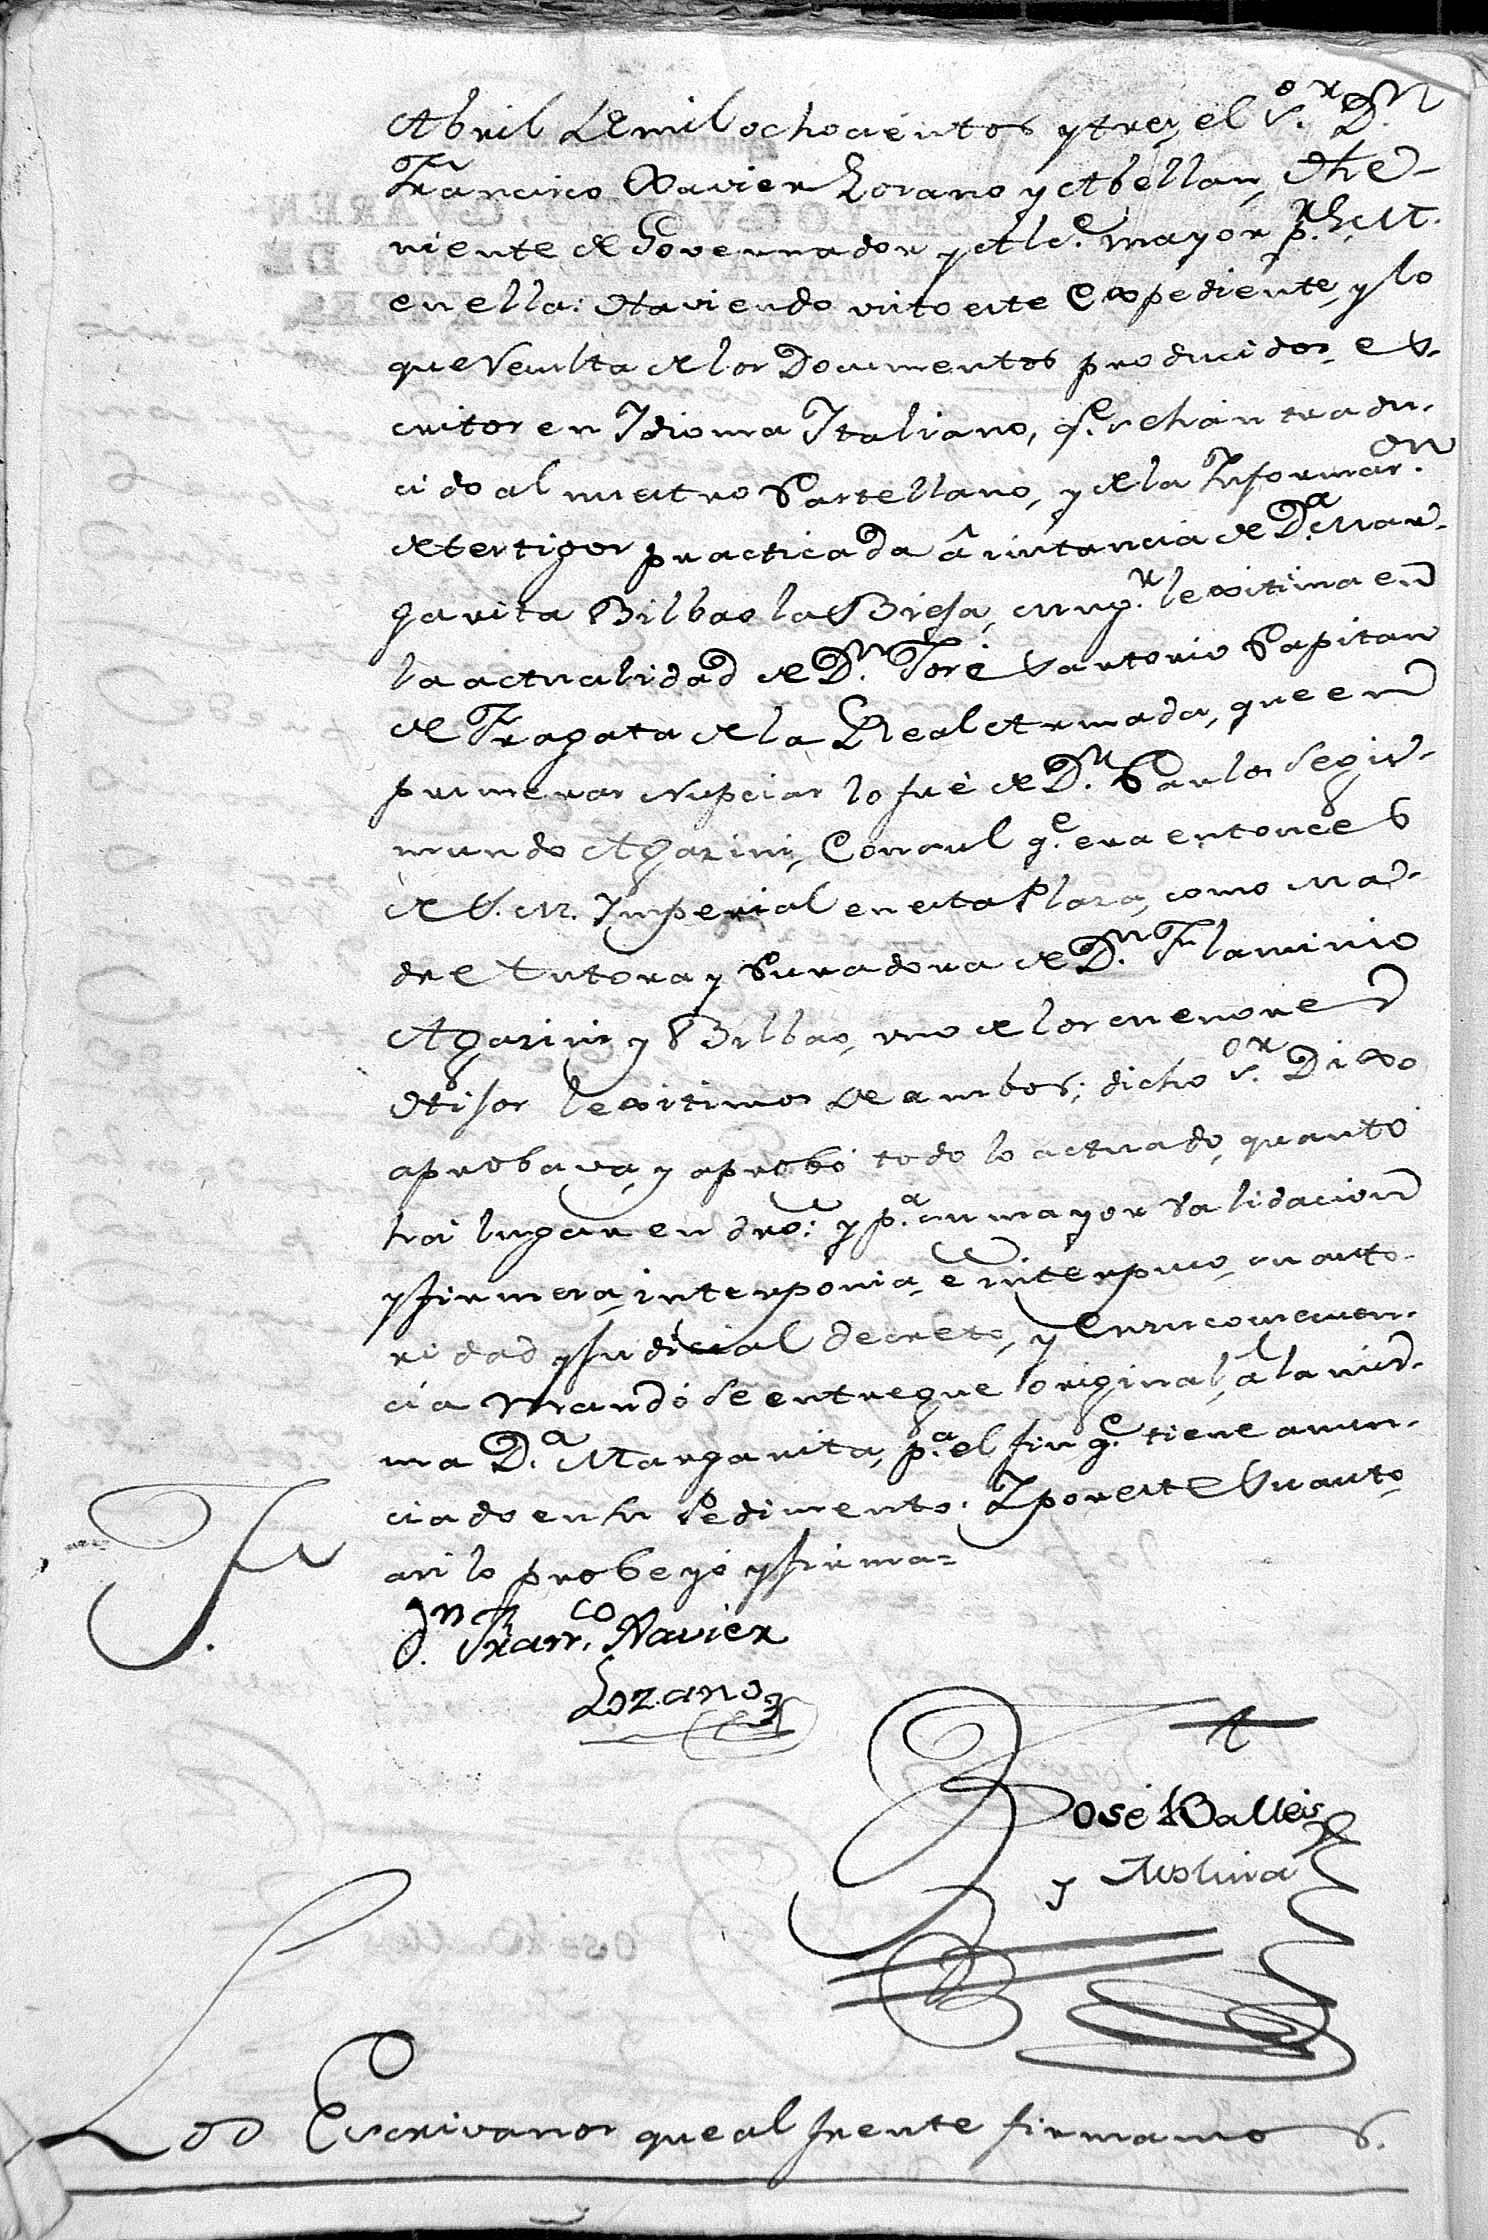 Abril de mil ochocientos y tres, el S.or D.n
Francisco Xavier Lozano y Abellan, The-
niente de Governador y Alc.e mayor p.r S. M.
en ella: Haviendo visto este Expediente, y lo
que resulta de los Documentos producidos es-
critos en Idioma Italiano, q.e se han tradu-
cido al nuestro Castellano, y de la Informas.on
de testigos practicada â instancia de D.a Mar-
garita Bilbao la Biesa, Mug.r lexitima en
la actualidad de D.n José Sartorio Capitan
de Fragata de la Real Armada, que en
primeras Nupcias lo fué de D.n Carlos Segis-
mundo Agazini, Consul q.e era entonces
de S. M. Imperial en esta Plaza, como Ma-
dre Tutora y Curadora de D.n Flaminio
Agazini y Bilbao, uno de los menores
Hijos lexitimos de ambos; dicho S.or Dixo
aprobava, y aprobó todo lo actuado, quanto
há lugar en dro: y p.a su mayor validacion
y firmesa, interponia, é interpuso, su auto-
ridad y judicial decreto, y en su consequen-
cia mandó se entregue original, á la mis-
ma D.a Margarita, p.a el fin q.e tiene anun-
ciado en su Pedimento: Y por este su auto
asi lo probeyó y firma=
D.n Fran.co Xavier
Lozano
José Balleis
y Molina
Los Escrivanos que al frente firmamos.